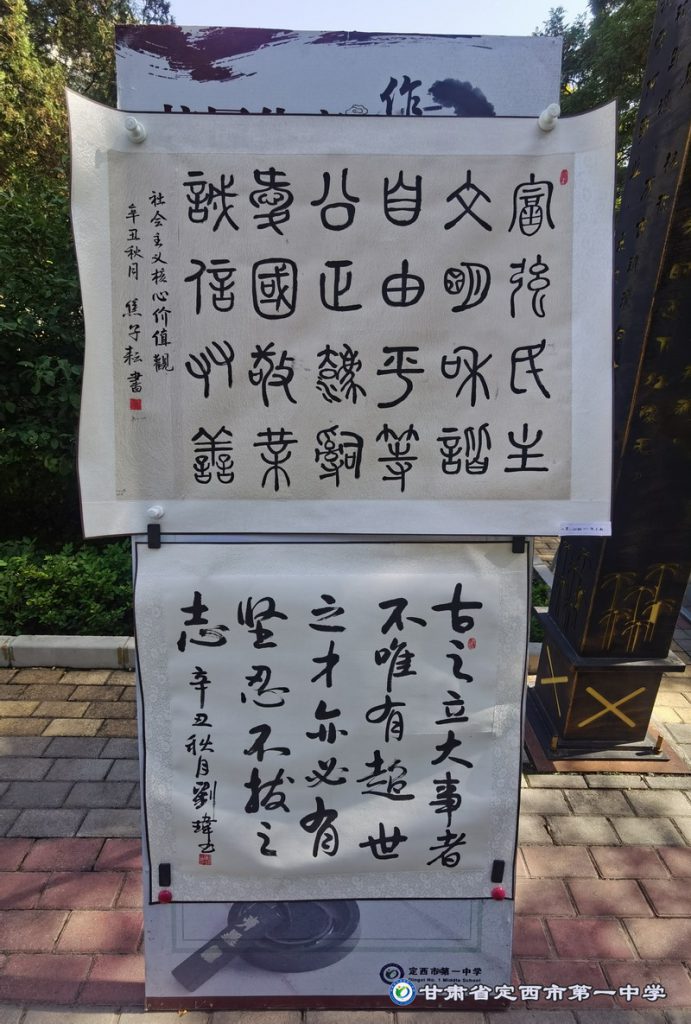 作
富強民主
文明和諧
自由平等
公正
愛國敬業
誠信友善
社会主义核心价值觀
辛丑秋月 焦子耘書
古之立大事者
不唯有超世
之才亦必有
坚忍不拔之
志
辛丑秋月劉瑋书
定西市第一中学
Dingxi No.1 Middle School
甘肃省定西市第一中学